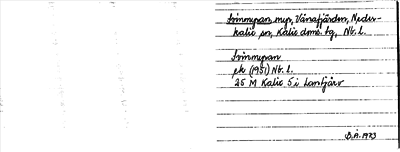 Trimmypan myr, Vånafjärden, Neder-
kalix sn, Kalix doms. tg, Nb. l.
Trimmypan
ek (1951) Nb. l.
25 M Kalix 5 i Lantjärv
B.Å. 1973